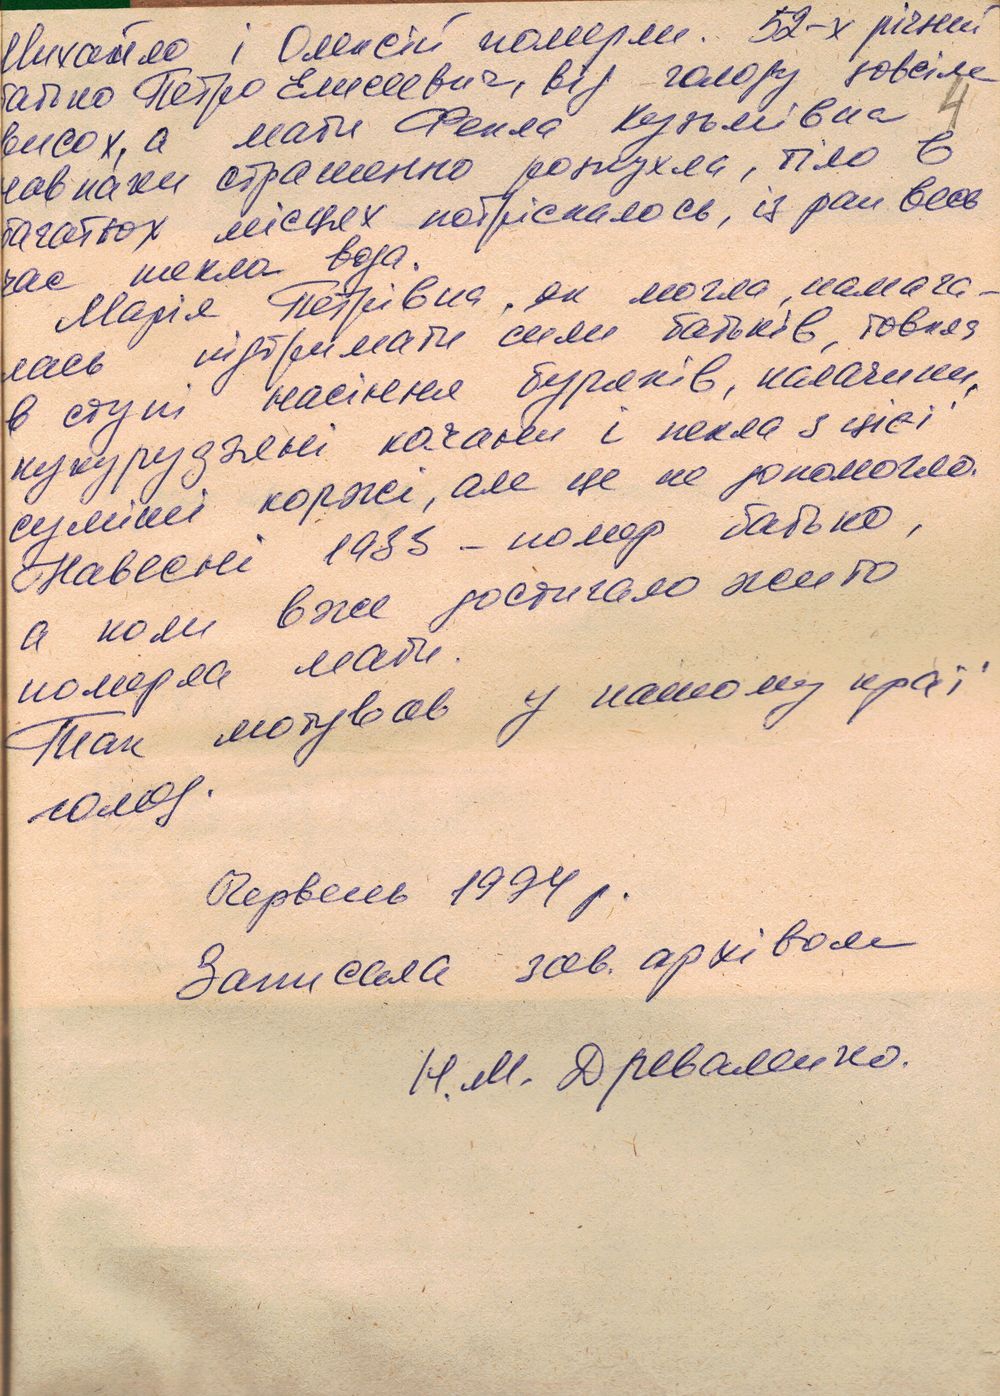 Михайло і Олексій померли. 52-х річний
батько Петро Єлисеевич, від голоду зовсім
4
висох, а мати Фекла Кузьмівна
навпаки страшенно розпухла, тіло в
багатьох місцях потріскалось, із ран весь
час текла вода.
Марія Петрівна, як могла, намага-
лась підтримати сили батьків, товкла
в ступі насіння буряків, калачики,
кукурудзяні качани і пекла з цієї
суміші коржі, але це не допомогло.
Навесні 1933 – помер батько,
а коли вже достигало жито
померла мати.
Так лютував у нашому краї
голод.
Червень 1994 р.
Записала зав. архівом
Н.М. Древаленко.